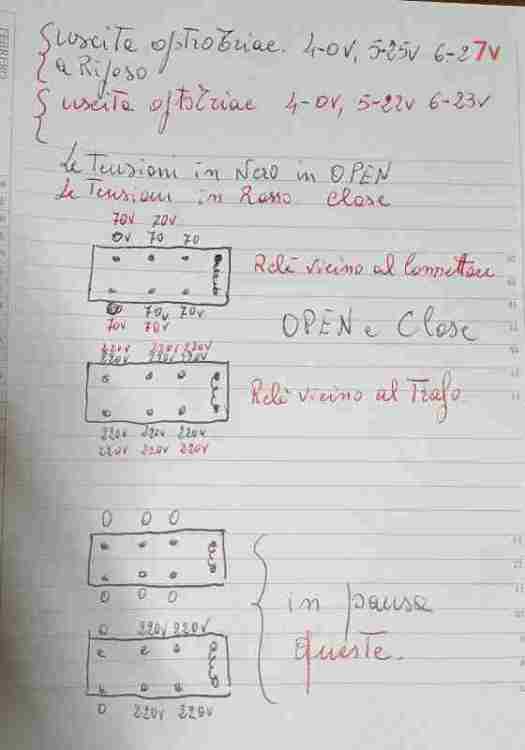 FEBBRAIO
uscita optotriac. 4-0v, 5-25v 6-27v
a Riposo
uscita optotriac 4-0v, 5-22v 6-23v
Le Tensioni in Nero in OPEN
Le Tensioni in Rosso Close
70v 70v
0v 70 70
Relè vicino al Connettore
0 70v 70v
70v 70v
OPEN e Close
220v 220v 220v
220v 220v 220v
Relè vicino al Trafo.
220v 220v 220v
220v 220v 220v
0 0 0
0 0 0
in pausa
0 220v 220v
queste.
0 220v 220v